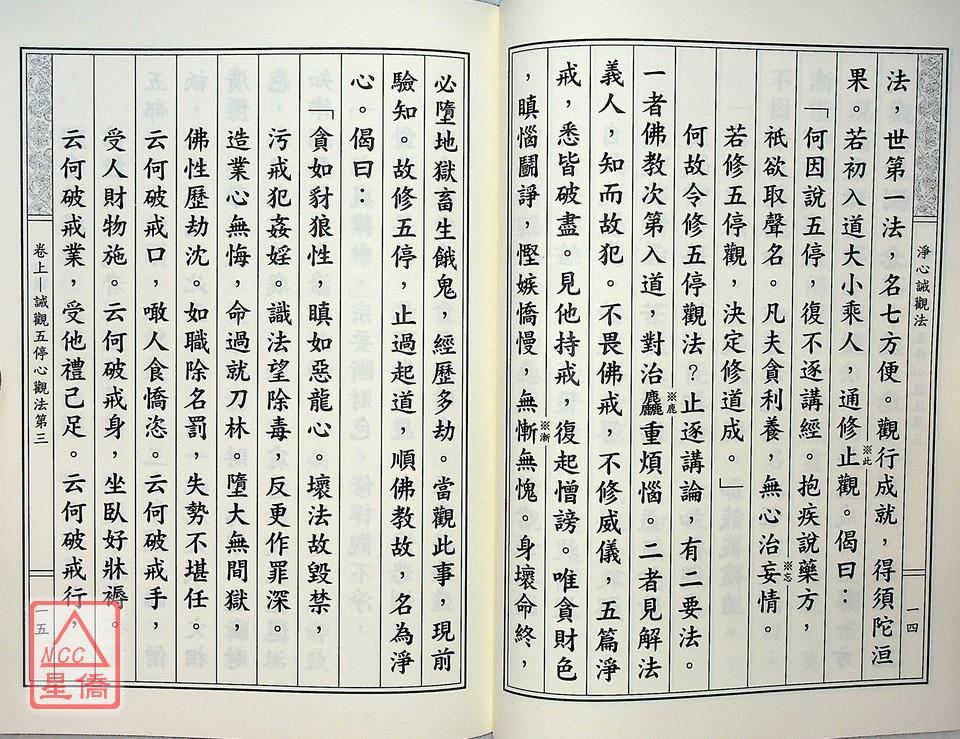 淨心誡觀法
一四
法，世第一法，名七方便。觀行成就，得須陀洹
果。若初入道大小乘人，通修止觀。偈曰：
※此
「何因說五停。復不逐講經。抱疾說藥方，
祇欲取聲名。凡夫貪利養，無心治妄情。
※忘
若修五停觀，決定修道成。」
何故令修五停觀法？止逐講論，有二要法。
一者佛教次第入道，對治麤重煩惱。二者見解法
※鹿
義人，知而故犯。不畏佛戒，不修威儀，五篇淨
戒，悉皆破盡。見他持戒，復起憎謗。唯貪財色
，瞋惱鬪諍，慳嫉憍慢，無慚無愧。身壞命終，
※漸
必墮地獄畜生餓鬼，經歷多劫。當觀此事，現前
驗知。故修五停，止過起道，順佛教故，名為淨
心。偈曰：
「貪如豺狼性，瞋如惡龍心。壞法故毀禁，
污戒犯姦婬。識法望除毒，反更作罪深。
造業心無悔，命過就刀林。墮大無間獄
佛性歷劫沈。如職除名罰，失勢不堪任
云何破戒口，噉人食憍恣。云何破戒手，
受人財物施。云何破戒身，坐臥好牀褥。
云何破戒業，受他禮己足。云何破戒行，
卷上—誡觀五停心觀法第三
一五
NCC
星僑